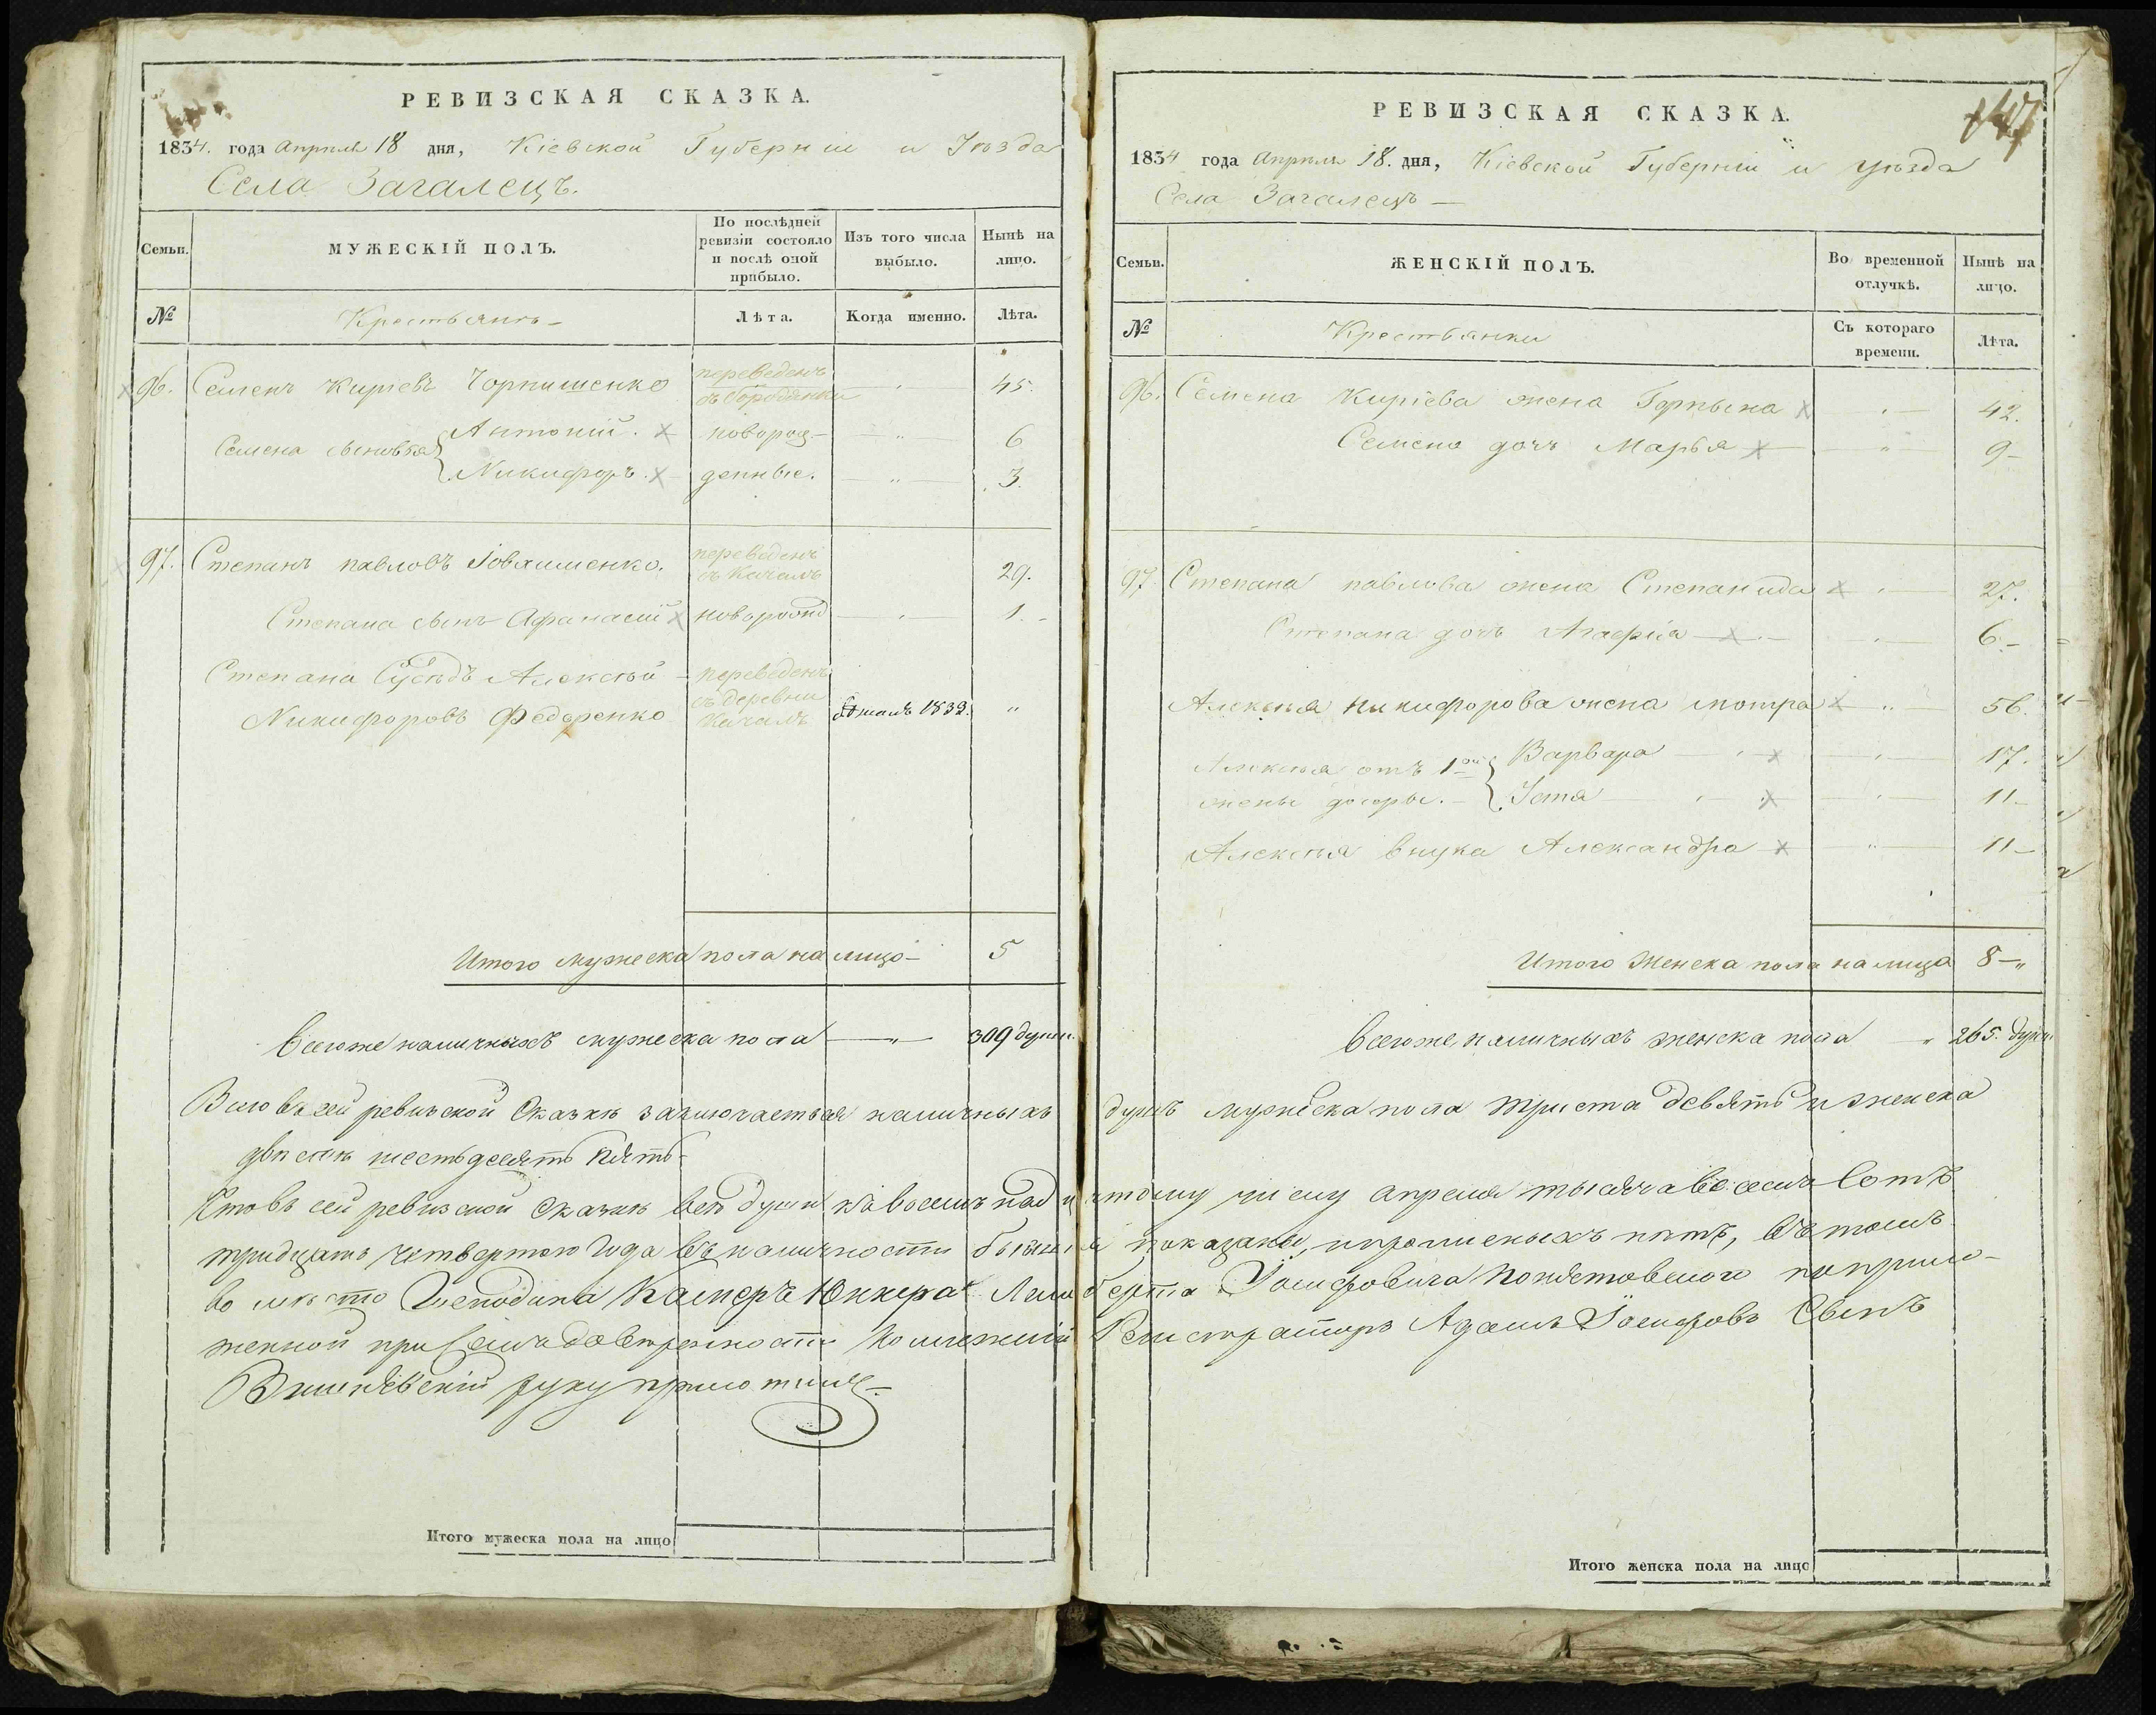 РЕВИЗСКАЯ СКАЗКА.
1834. года Апреля 18 дня, Кіевской Губернии и Уѣзда
Села Загалецъ.
Семьи. МУЖЕСКІЙ ПОЛЪ. По послѣдней ревизіи состояло и послѣ оной прибыло. Изъ того числа выбыло. Нынѣ на лицо.
№ Крестьянъ – Лѣта. Когда именно. Лѣта.
96. Семенъ Киріевъ переведенъ съ Бородянки 45.
Семена сыновья Антоній. новорож- 6
Никифоръ. денные. 3.
97. Степанъ павловъ переведенъ съ Качалъ 29.
Степана сынъ Афанасій новорожд 1.
Степана Сусѣдъ Алексѣй переведенъ
Никифоровъ Федоренко съ деревни Качалъ 1832. "
Итого мужеска пола на лицо – 5
Всегоже наличныхъ мужеска пола — " — 309 душъ.
РЕВИЗСКАЯ СКАЗКА.
1834 года Апреля 18. дня, Кіевской Губерніи и уѣзда
Села Загалецъ —
Семьи. ЖЕНСКІЙ ПОЛЪ. Во временной отлучкѣ. Нынѣ на лицо.
№ Крестьянки Съ котораго времени. Лѣта.
96. Семена Киріева жена Горпына 42.
Семена дочь Марья " 9-
97. Степана павлова жена Степанида 27.
Степана дочь Агафія 6.-
Алексѣя Никифорова жена " 56.
Алексѣя отъ 1ой Варвара 17.
жены дочеры. Устя 11-
Алексѣя внука Александра " 11-
Итого Женска пола налица 8-"
Всегоже наличныхъ женска пола " 265. душъ
Всего въ сей ревизской Сказкѣ заключается наличныхъ душъ мужеска пола триста девять и женска
двѣстѣ шестьдесятъ пять
Что въ сей ревизской Сказкѣ всѣ души къ восемь надцятому числу Апреля тысяча восемь Сотъ
тридцать четвертого Года въ наличности бывшія показаны, и пропысныхъ нѣтъ, въ томъ
во мѣсто Господина Камеръ Юнкера Ламберта Іосифовича Понятовского по прило-
женной при семъ довѣренности Колежскій Регистраторъ Адамъ Іосифовъ Сынъ
руку приложилъ
Итого мужеска пола на лицо
Итого женска пола на лицо